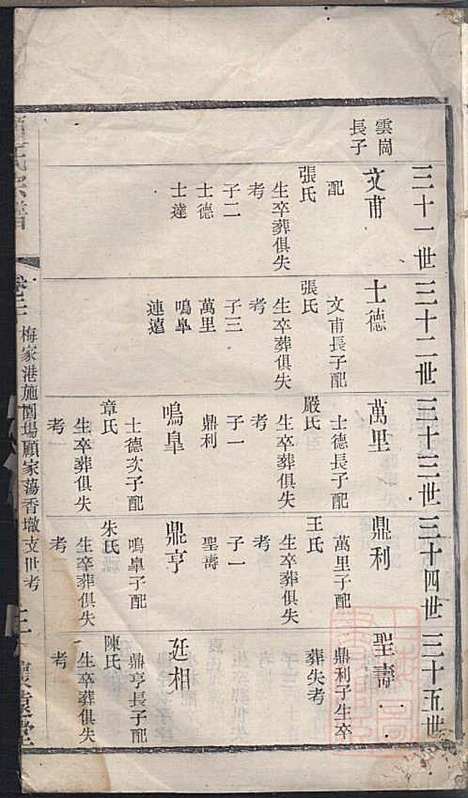 三十一世
雲崗長子
文甫
配張氏
生卒葬俱失考
子二
士德
士達
三十二世
士德
文甫長子配張氏
生卒葬俱失考
子三
萬里
鳴臯
連遠
三十三世
萬里
士德長子配嚴氏
生卒葬俱失考
子一
鼎利
鳴臯
士德次子配章氏
生卒葬俱失考
三十四世
鼎利
萬里子配王氏
生卒葬俱失考
子一
聖壽
鼎亨
鳴臯子配朱氏
生卒葬俱失考
三十五世
聖壽
鼎利子生卒葬失考
廷相
鼎亨長子配陳氏
生卒葬俱失考
氏宗譜
卷三
梅家港施圍場顧家蕩香墩支世考
懷遠堂